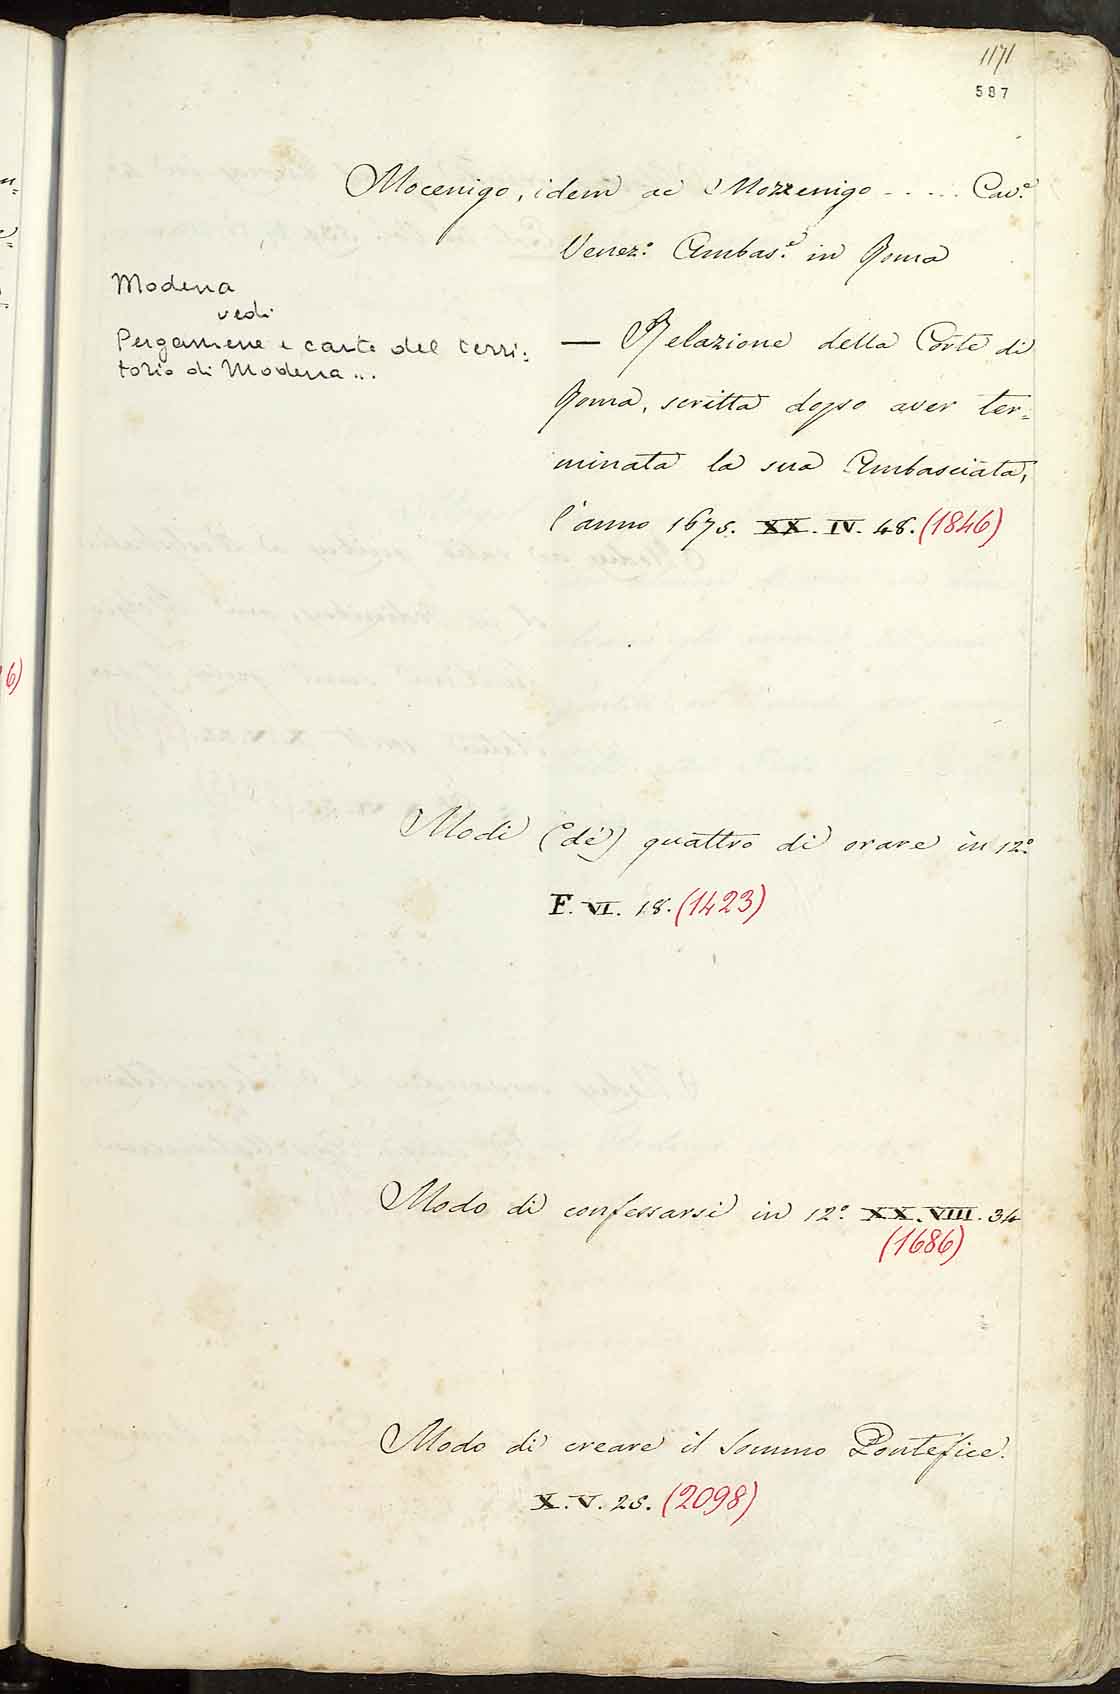 1171
587
Mocenigo, idem ac Mozzenigo ..... Cav.e
Venez.o Ambas.e in Roma
Modena
vedi
Pergamene e carte del terri:
torio di Modena...
— Relazione della Corte di
Roma, scritta dopo aver ter=
minata la sua Ambasciata,
l'anno 1675. XX. IV. 48. (1846)
Modi (de') quattro di orare in 12.o
F. VI. 18. (1423)
Modo di confessarsi in 12.o XX. VIII. 34
(1686)
Modo di creare il Sommo Pontefice.
X. V. 25. (2098)
6)